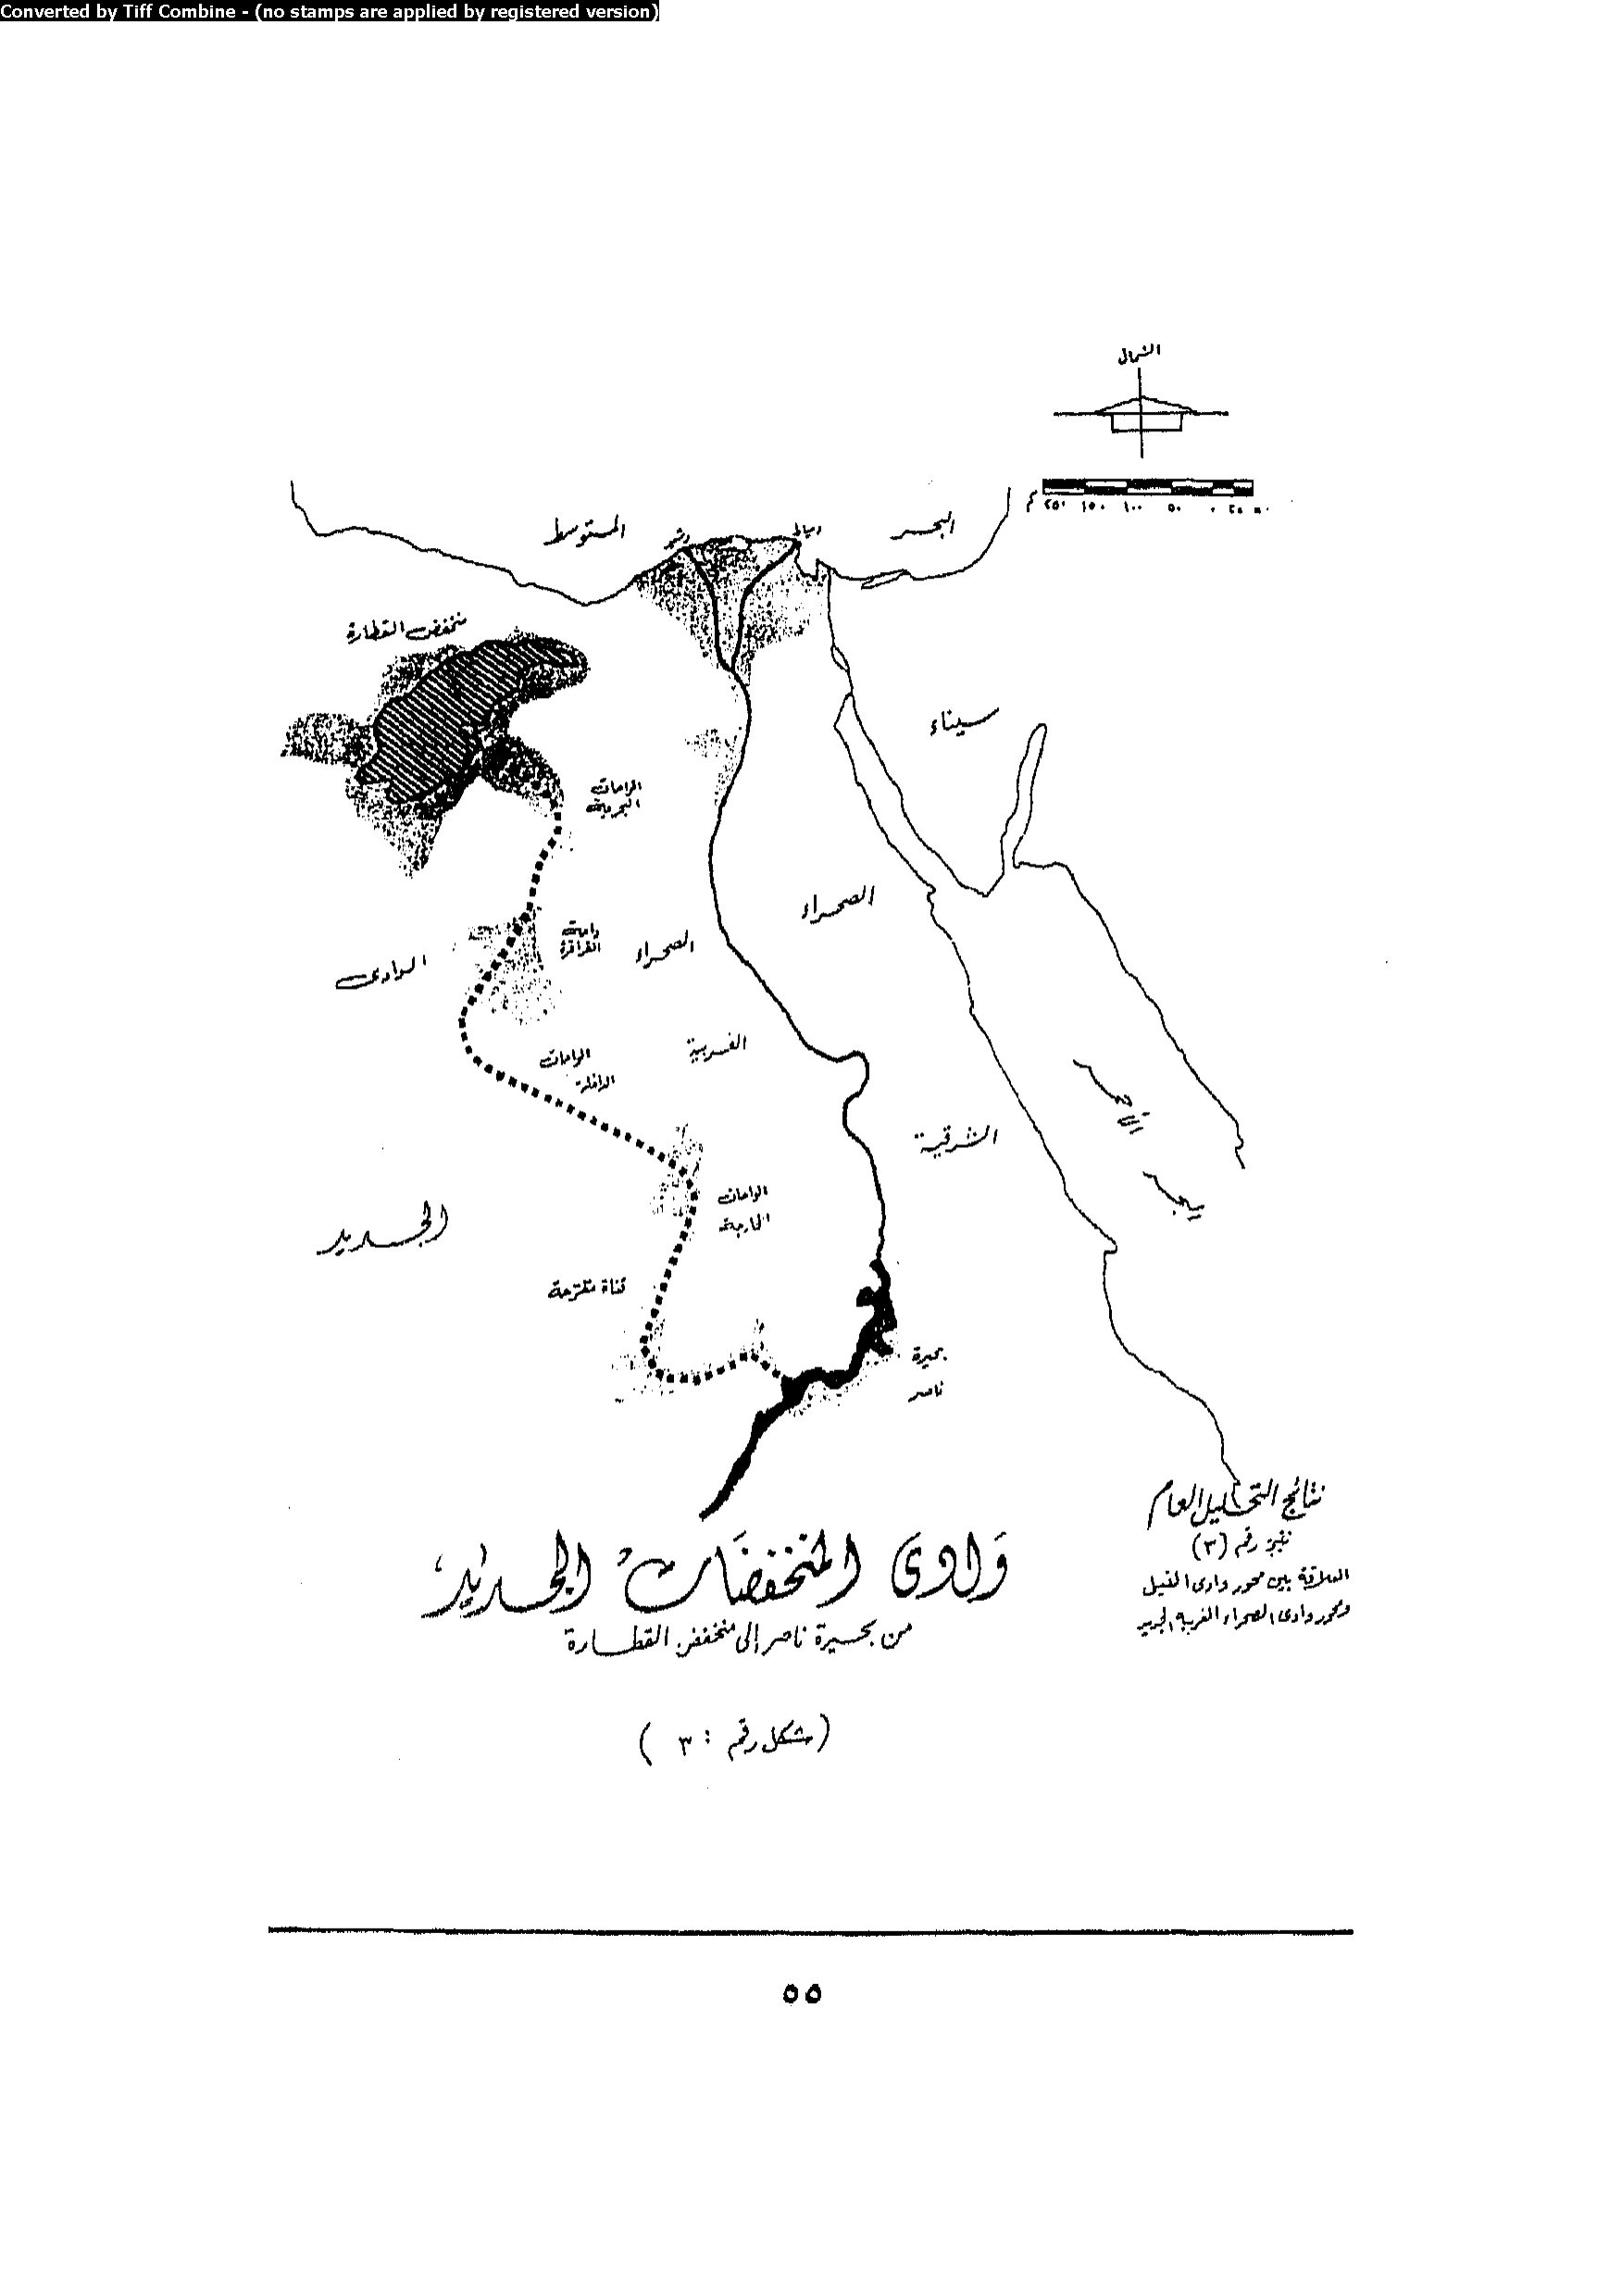 Converted by Tiff Combine - (no stamps are applied by registered version)
الشمال
٢٥٠ ١٥٠ ١٠٠ ٥٠ ٠ ٢٥ ٥٠
البحر
المتوسط
دمياط
رشيد
منخفض القطارة
سيناء
الواحات
البحرية
الصحراء
الصحراء
واحة
الفرافرة
الوادى
الغربية
الواحات
الداخلة
الشرقية
الواحات
الخارجة
الجديد
قناة مقترحة
بحيرة
ناصر
نتائج التحليل العام
نتيجة رقم (٣)
العلاقة بين محور وادى النيل
ومحور وادى الصحراء الغربية الجديد
وَادى المنخفضَات الجديد
من بحيرة ناصر إلى منخفض القطارة
(شكل رقم : ٣ )
٥٥